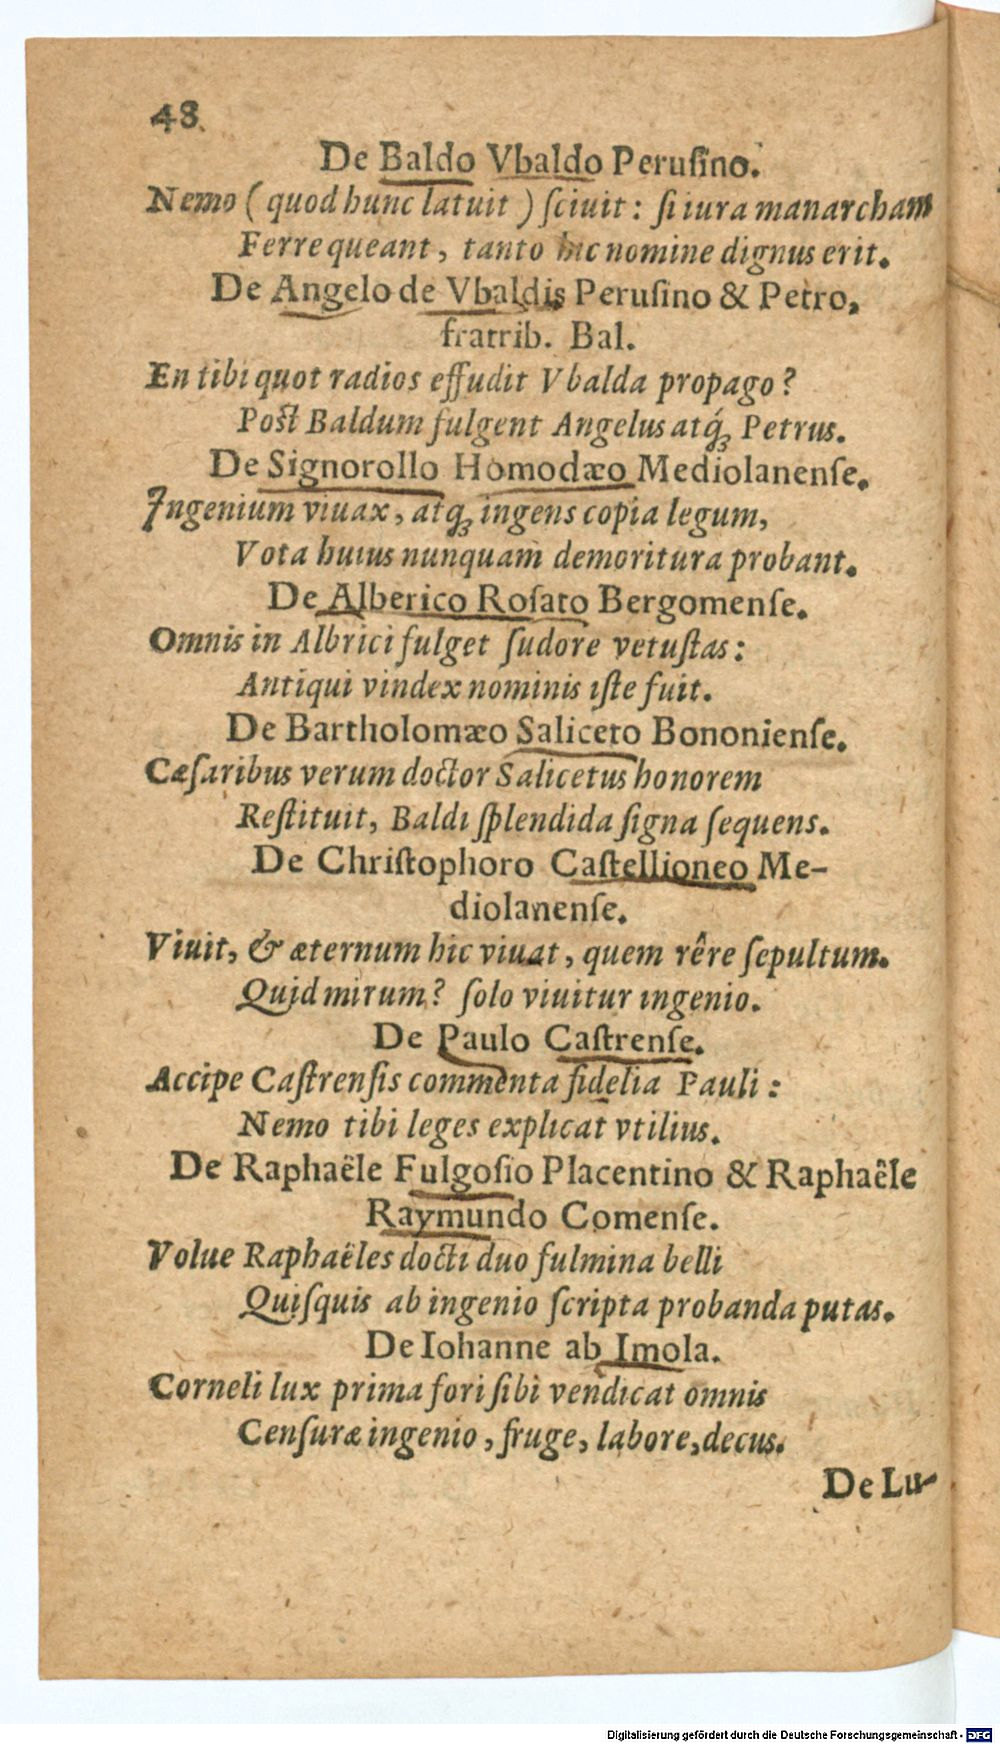 48
De Baldo Vbaldo Peruſino.
Nemo ( quod hunc latuit ) ſciuit : ſi iura manarcham
Ferre queant, tanto hic nomine dignus erit.
De Angelo de Vbaldis Peruſino & Petro,
fratrib. Bal.
En tibi quot radios effudit Vbalda propago ?
Poſt Baldum fulgent Angelus atq́ꝫ Petrus.
De Signorollo Homodæo Mediolanenſe.
Ingenium viuax, atqꝫ ingens copia legum,
Vota huius nunquam demoritura probant.
De Alberico Roſato Bergomenſe.
Omnis in Albrici fulget ſudore vetuſtas :
Antiqui vindex nominis iſte fuit.
De Bartholomæo Saliceto Bononienſe.
Cæſaribus verum doctor Salicetus honorem
Reſtituit, Baldi ſplendida ſigna ſequens.
De Chriſtophoro Caſtellioneo Me-
diolanenſe.
Viuit, & æternum hic viuat, quem rêre ſepultum.
Quid mirum? ſolo viuitur ingenio.
De Paulo Caſtrenſe.
Accipe Caſtrenſis commenta fidelia Pauli :
Nemo tibi leges explicat vtilius.
De Raphaële Fulgoſio Placentino & Raphaêle
Raymundo Comenſe.
Volue Raphaëles docti duo fulmina belli
Quiſquis ab ingenio ſcripta probanda putas.
De Iohanne ab Imola.
Corneli lux prima fori ſibi vendicat omnis
Cenſuræ ingenio, fruge, labore, decus.
De Lu-
Digitalisierung gefördert durch die Deutsche Forschungsgemeinschaft - DFG